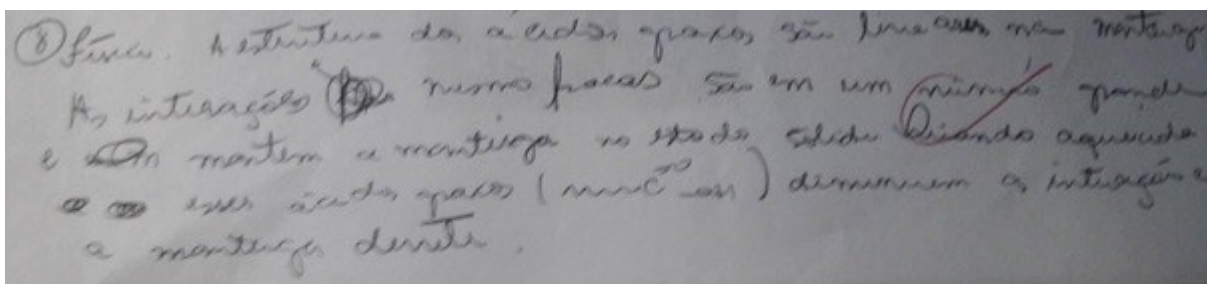 ⑧ física. A estrutura dos ácidos graxos são lineares na manteiga
As interações mesmo fracas são em um número grande
e mantem a manteiga no estado sólido Quando aquecido
esses ácidos graxos ( ) diminuem as interações e
a manteiga derrete.